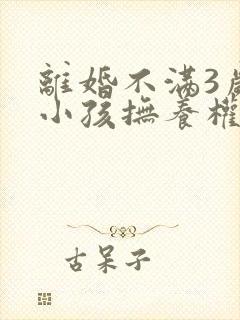 離婚不滿3歲
小孩撫養權
古呆子